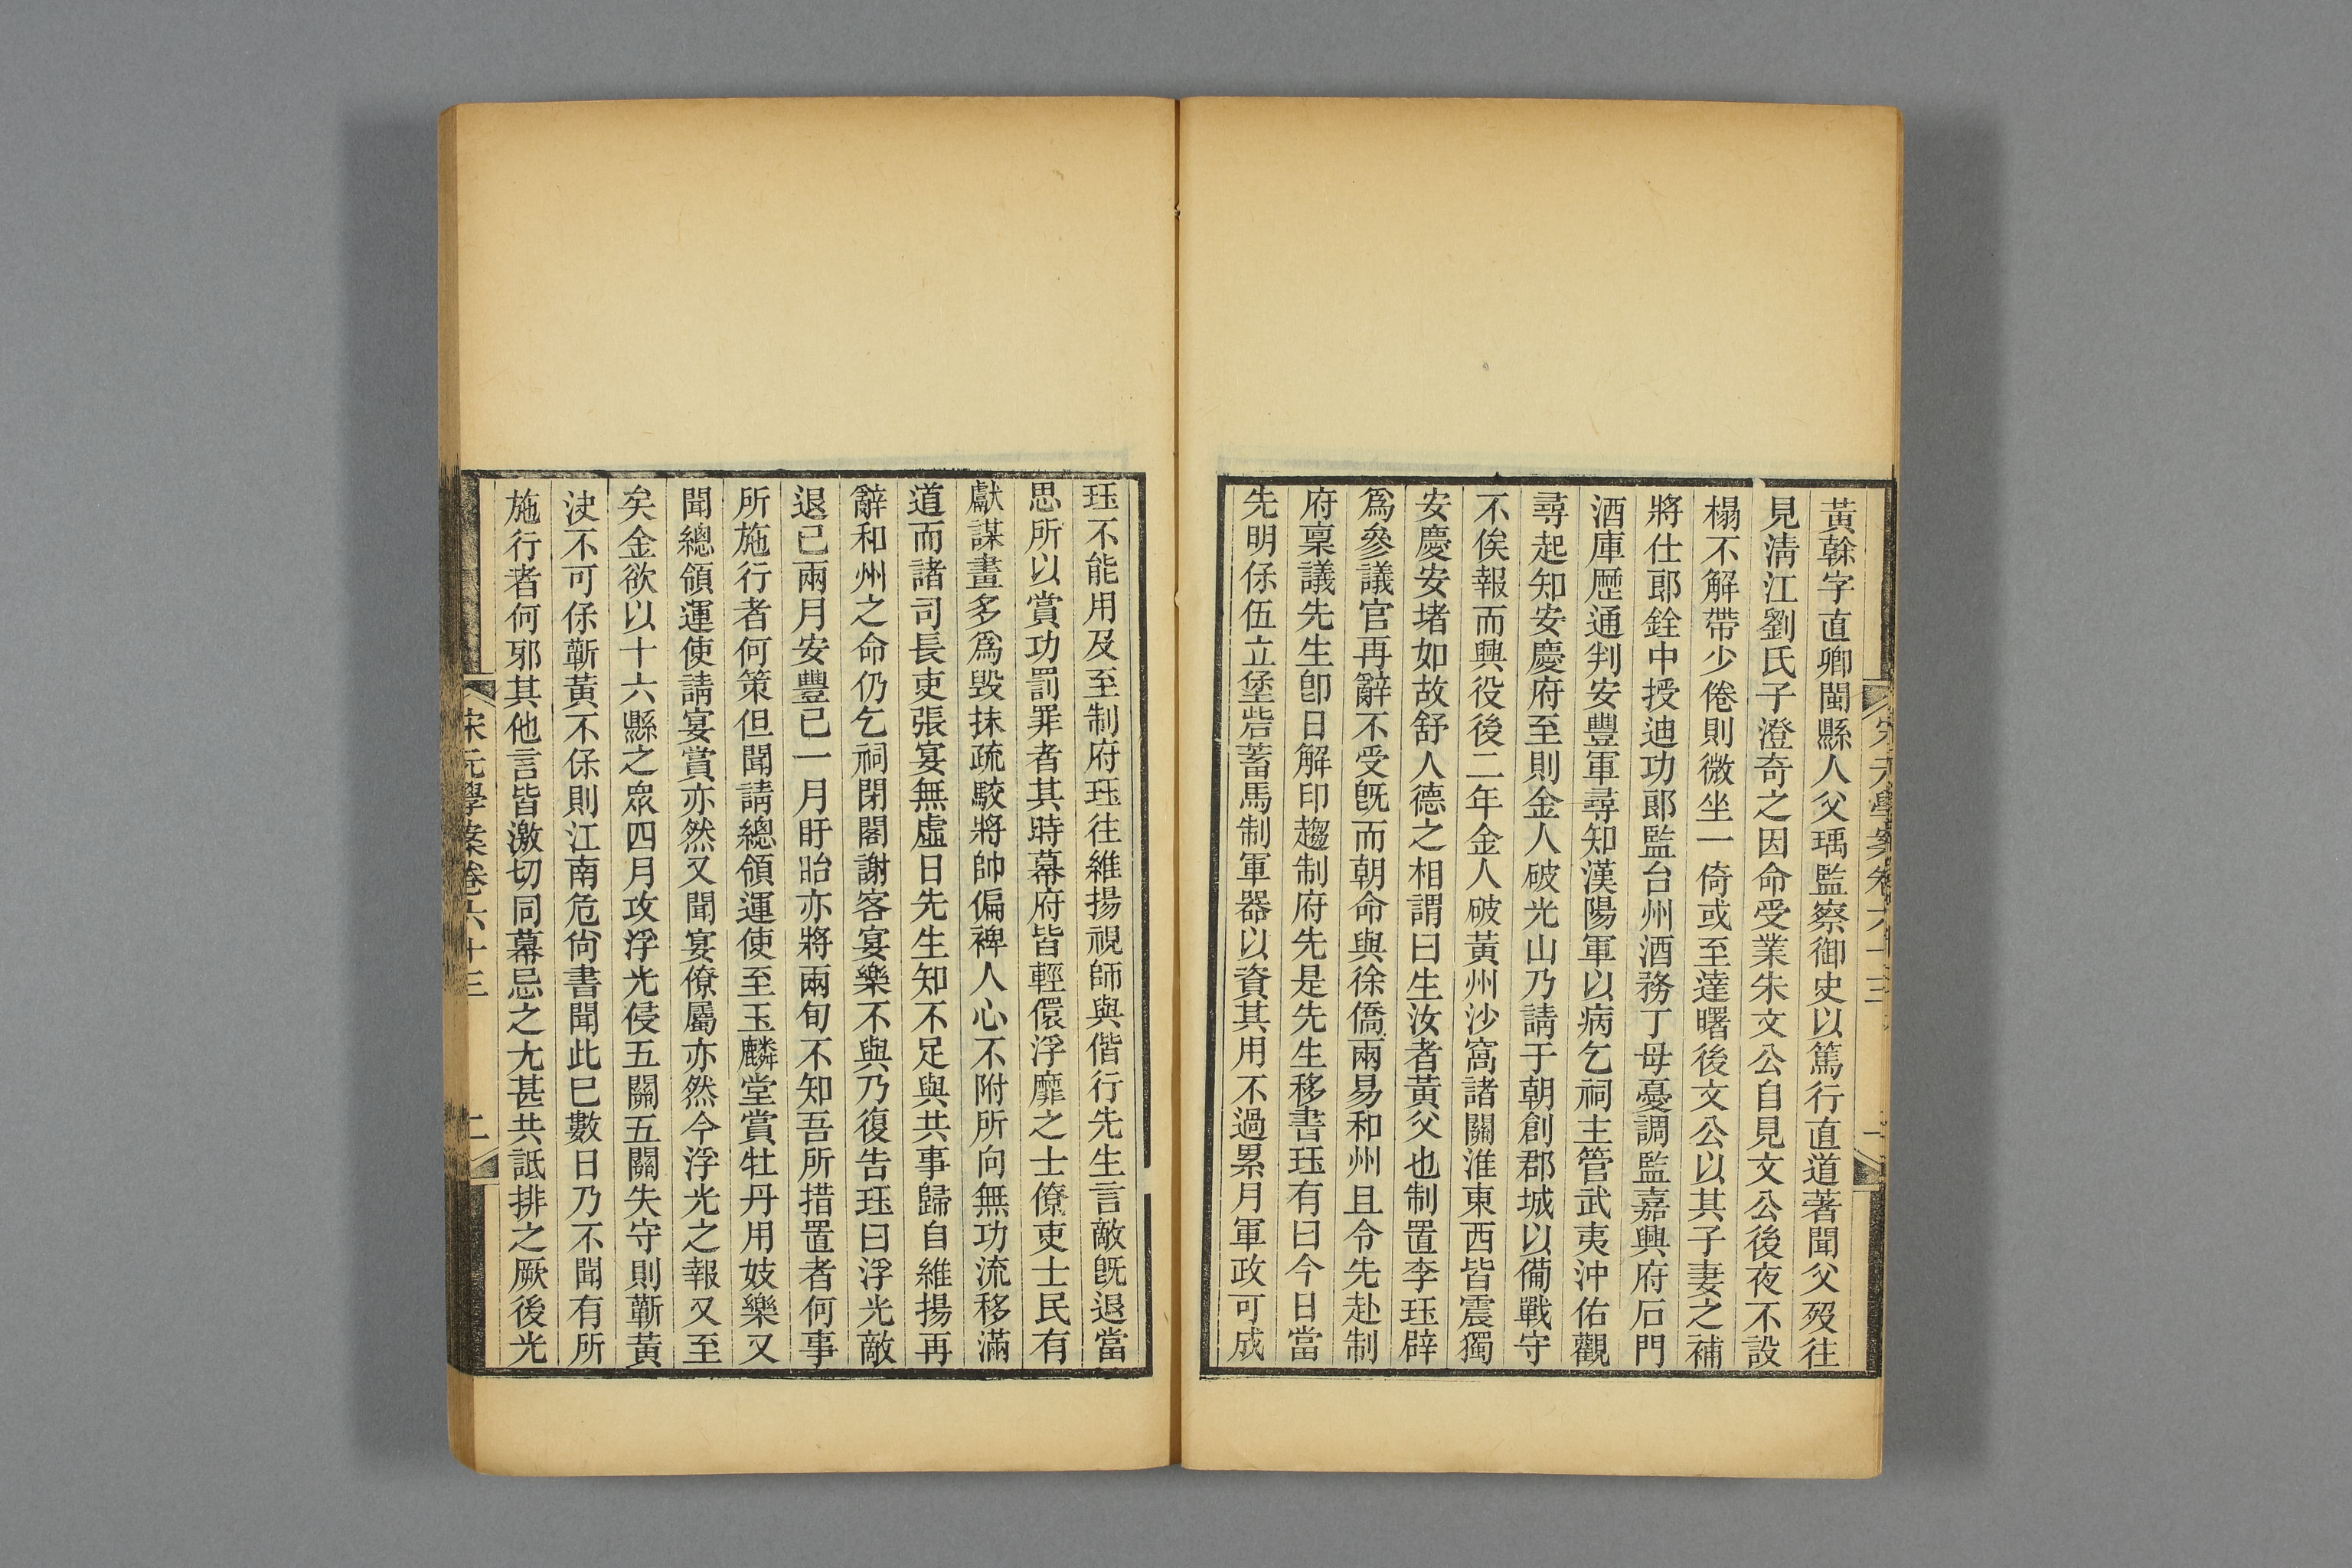 黃榦字直卿閩縣人父瑀監察御史以篤行直道著聞父歿往
見淸江劉氏子澄奇之因命受業朱文公自見文公後夜不設
榻不解帶少倦則微坐一倚或至達曙後文公以其子妻之補
將仕郞銓中授迪功郞監台州酒務丁母憂調監嘉興府石門
酒庫歷通判安豐軍尋知漢陽軍以病乞祠主管武夷沖佑觀
尋起知安慶府至則金人破光山乃請于朝創郡城以備戰守
不俟報而興役後二年金人破黃州沙窩諸關淮東西皆震獨
安慶安堵如故舒人德之相謂曰生汝者黃父也制置李珏辟
爲參議官再辭不受旣而朝命與徐僑兩易和州且令先赴制
府稟議先生卽日解印趨制府先是先生移書珏有曰今日當
先明保伍立堡砦蓄馬制軍器以資其用不過累月軍政可成
珏不能用及至制府珏往維揚視師與偕行先生言敵旣退當
思所以賞功罰罪者其時幕府皆輕儇浮靡之士僚吏士民有
獻謀畫多爲毀抹疏駁將帥偏裨人心不附所向無功流移滿
道而諸司長吏張宴無虛日先生知不足與共事歸自維揚再
辭和州之命仍乞祠閉閣謝客宴樂不與乃復告珏曰浮光敵
退已兩月安豐已一月盱眙亦將兩旬不知吾所措置者何事
所施行者何策但聞請總領運使至玉麟堂賞牡丹用妓樂又
聞總領運使請宴賞亦然又聞宴僚屬亦然今浮光之報又至
矣金欲以十六縣之眾四月攻浮光侵五關五關失守則蘄黃
決不可保蘄黃不保則江南危尙書聞此已數日乃不聞有所
施行者何邪其他言皆激切同幕忌之尤甚共詆排之厥後光
宋元學案卷六十三
二